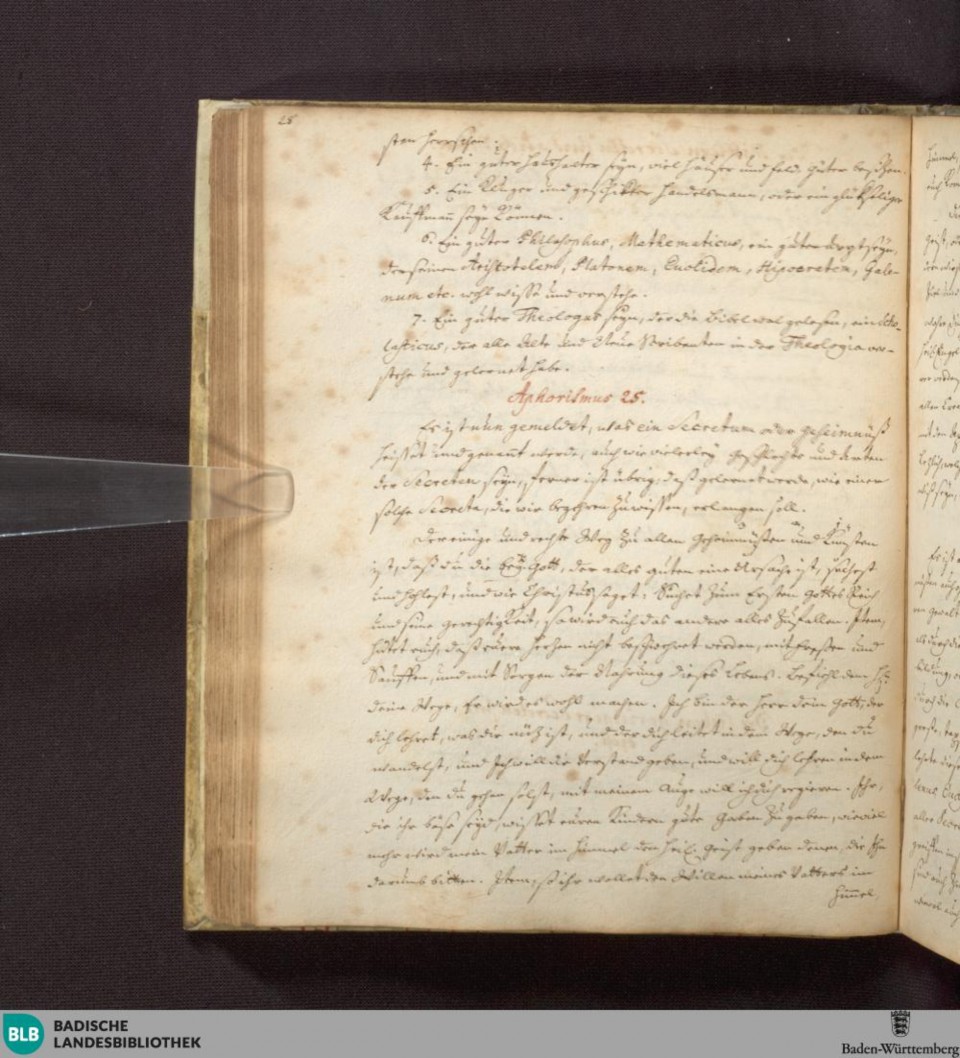 28
sten herrschen.
4. Ein guter haushalter seyn, viel häuser und feld güter besitzen.
5. Ein kluger und geschikter handelsmann, oder ein glükseliger
Kauffman seyn können.
6. Ein guter Philosophus, Mathematicus, ein guter Arzt seyn,
der seinen Aristotelem, Platonem, Euclidem, Hipocratem, Gale-
num etc. wohl wisse und verstehe.
7. Ein guter Theologus seyn, der die Bibel wol gelesen, ein
lasticus, der alle Alte und Neue Scribenten in der Theologia ver-
stehe und gelernet habe.
Aphorismus 25.
Es ist nun gemeldet, was ein Secretum oder geheimnüß
heisset und genannt werde, auch wie vielerley Geschlechte und Arten
der Secreten seyn, ferner ist übrig, daß gelernet werde, wie einer
solche Secreta, die wir begehren zu wissen, erlangen soll.
Der einige und rechte Weg zu allen Geheimnüßen und Künsten
ist, daß du die bey Gott, der alles guten eine Ursache ist, suchest
und hohlest, und wie Christus saget: Suchet zum Ersten Gottes Reich
und seine gerechtigkeit, so wird euch das andere alles zufallen. Item,
hütet euch, daß eüere hertzen nicht beschweret werden, mit freßen und
Sauffen, und mit Sorgen der Nahrung dieses Lebens. Befiehl dem
deine Wege, Er wird es wohl machen. Ich bin der Herr dein Gott, der
dich lehret, was dir nüz ist, und der dich leitet in dem Wege, den du
wandelst, und Ich will dir Verstand geben, und will dich lehren in dem
Wege, den du gehen solst, mit meinem Auge will ich dich regieren. Ihr,
die ihr böse seyd, wisset euren Kindern gute Gaben zu geben, wieviel
mehr wird mein Vatter im himmel den heil. Geist geben denen, die Ihn
darumb bitten. Item, so ihr wollet den Willen meines Vatters im
himel,
BLB
BADISCHE
LANDESBIBLIOTHEK
Baden-Württemberg